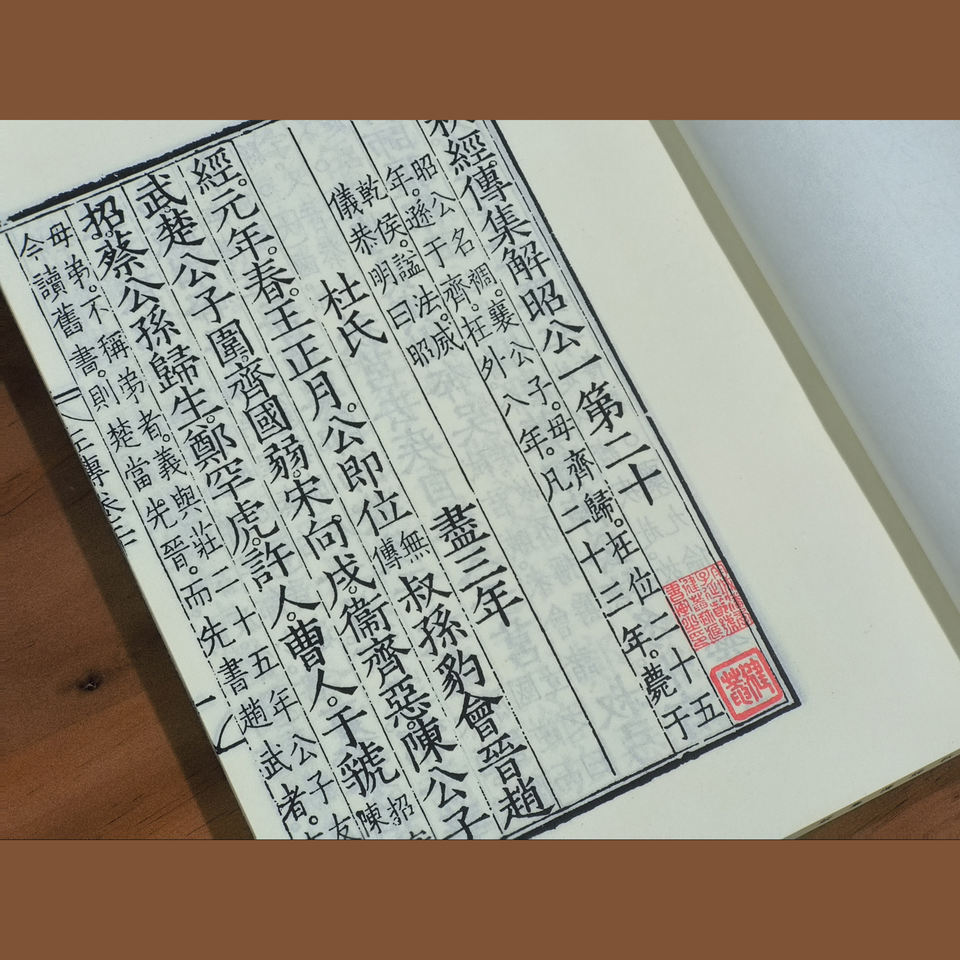 秋經傳集解昭公一第二十
昭公名裯。襄公子。母齊歸。在位二十五
年。遜于齊。在外八年。凡二十三年。薨于
乾侯。諡法。威
儀恭明曰昭
杜氏　盡三年
經。元年。春。王正月。公即位無傳叔孫豹會晉趙
武。楚公子圍。齊國弱。宋向戌。衞齊惡。陳公子
招。蔡公孫歸生。鄭罕虎。許人。曹人。于虢
招
陳
母弟。不稱弟者。義與莊二十五年公子友
今讀舊書。則楚當先晉。而先書趙武者。